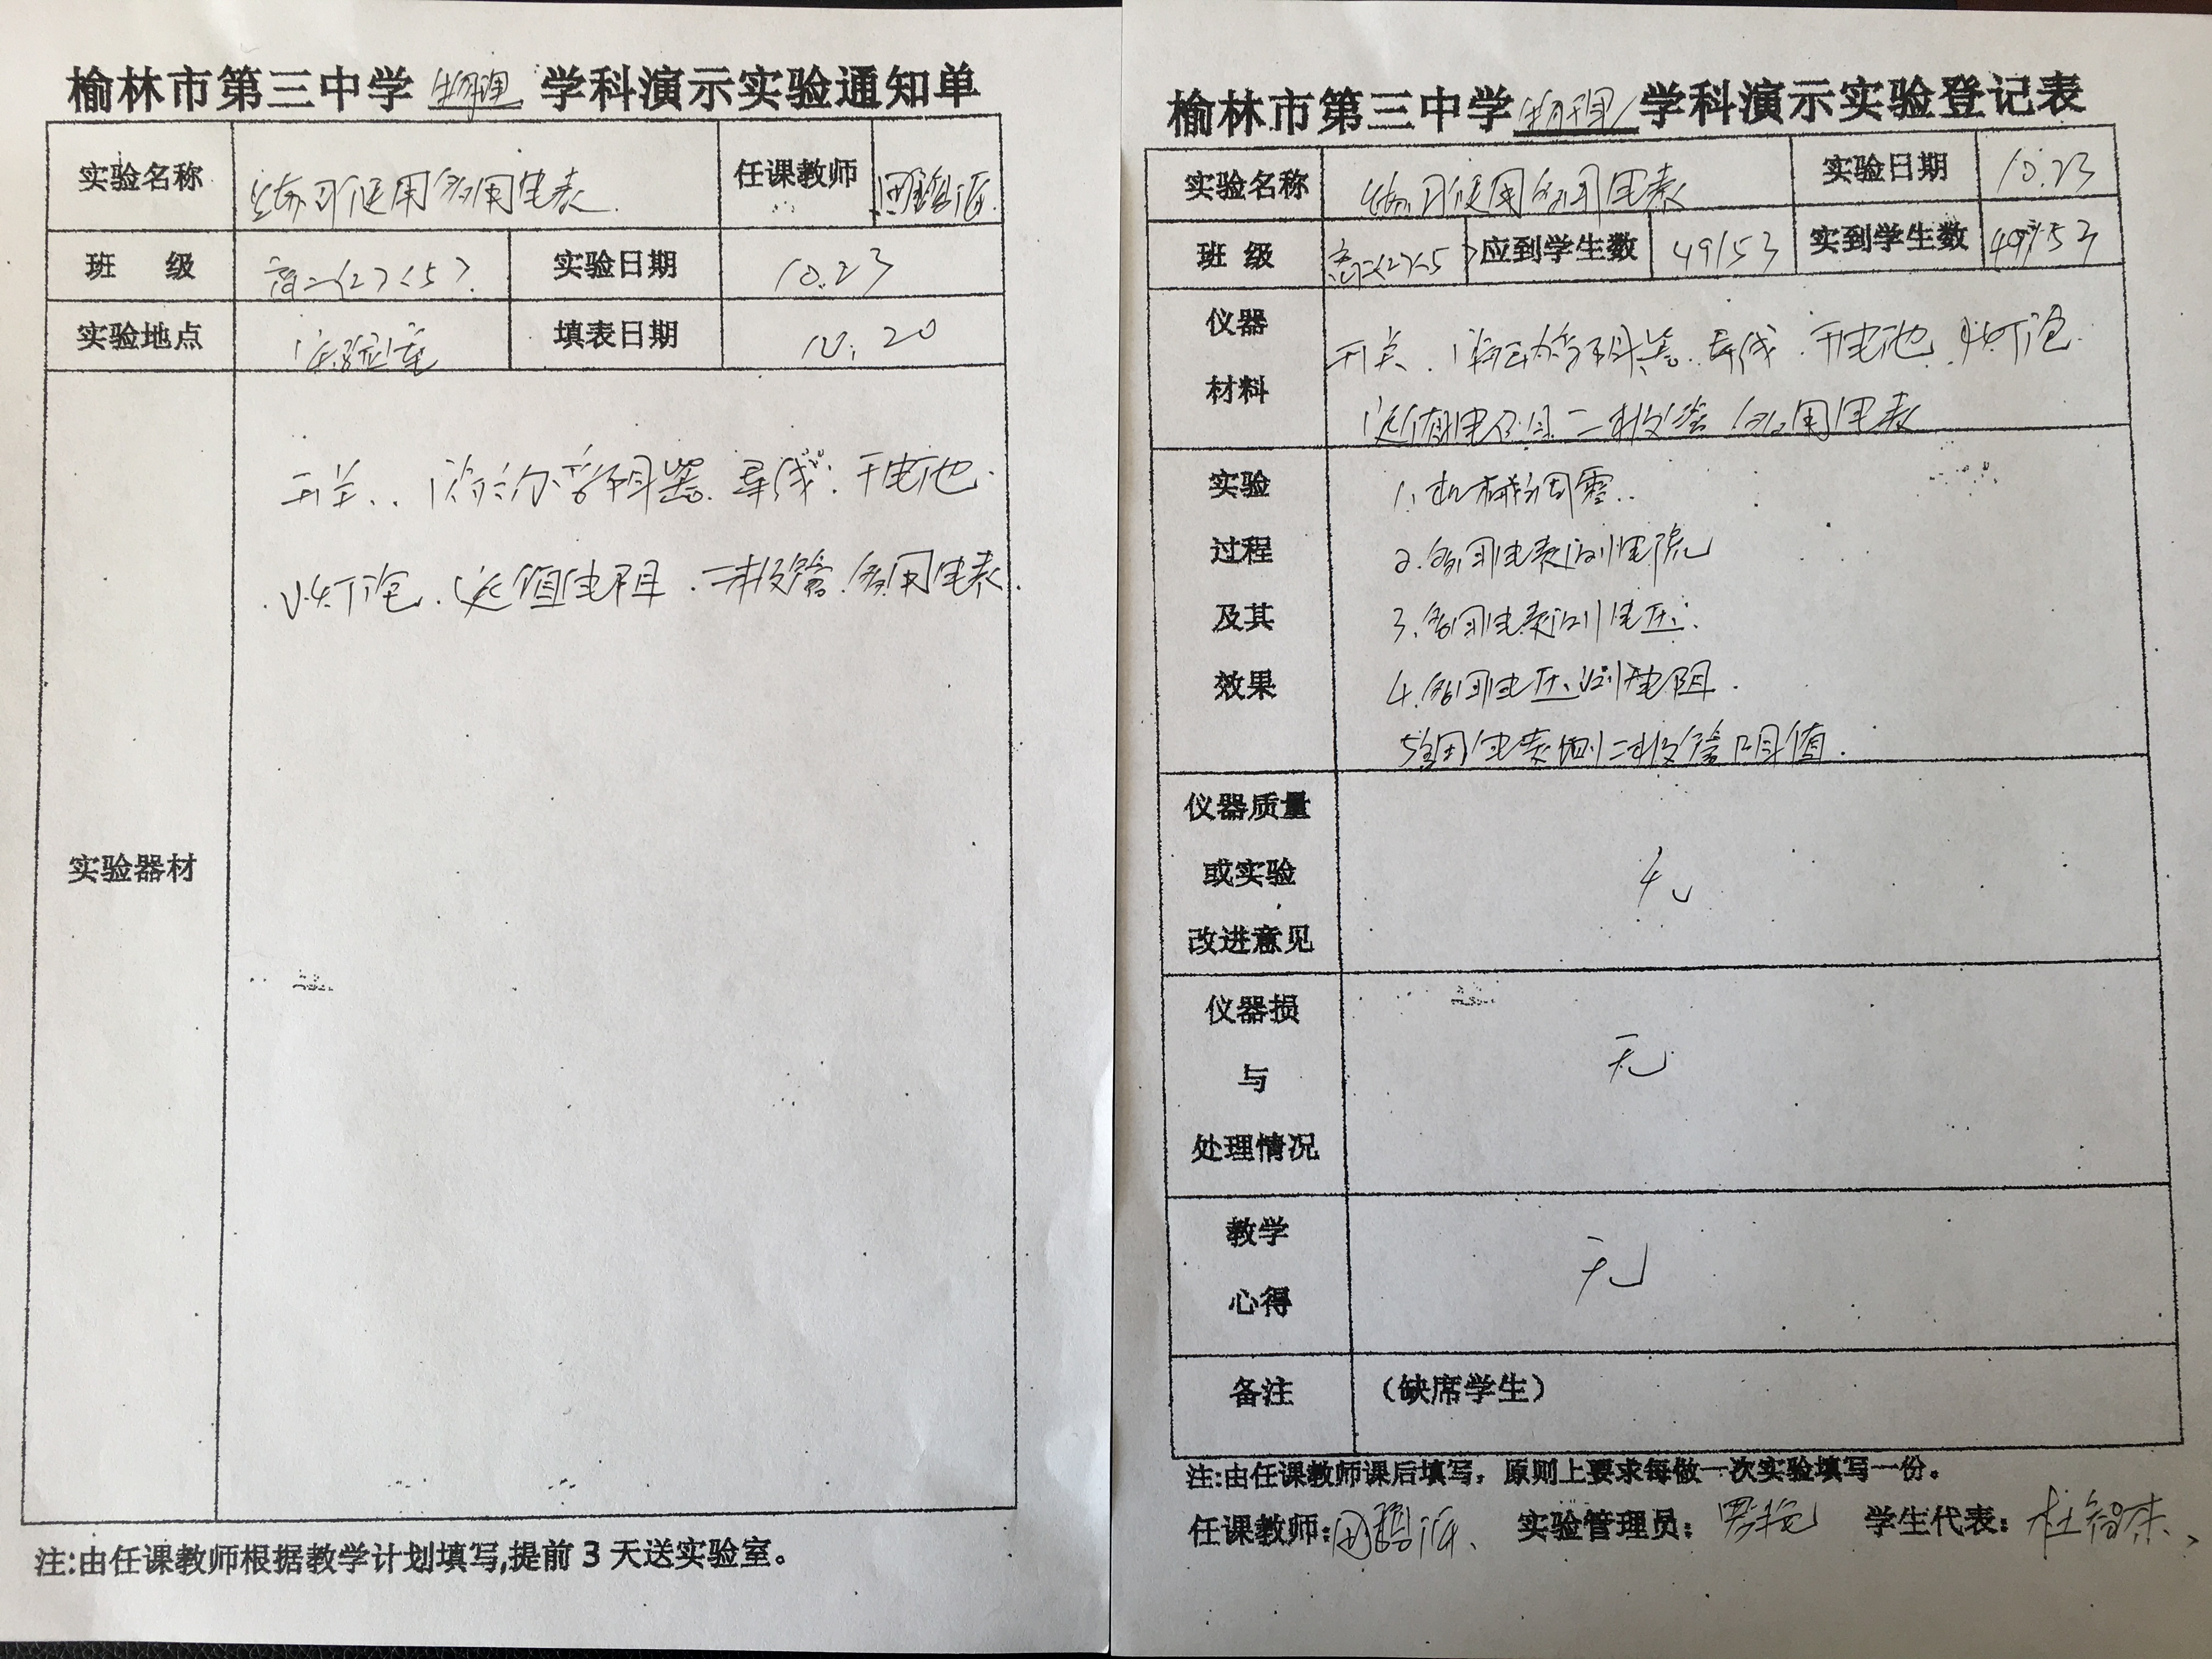 榆林市第三中学 物理 学科演示实验通知单
实验名称 练习使用多用电表. 任课教师
班 级 高二<2><5>. 实验日期 10.23
实验地点 实验室 填表日期 10.20
实验器材
开关.. 滑动变阻器. 导线. 干电池.
小灯泡. 定值电阻. 二极管. 多用电表.
注:由任课教师根据教学计划填写,提前3天送实验室。
榆林市第三中学 物理 学科演示实验登记表
实验名称 练习使用多用电表 实验日期 10.23
班 级 高二<2><5> 应到学生数 49/53 实到学生数 49/53
仪器
材料
开关. 滑动变阻器. 导线. 干电池. 小灯泡.
定值电阻 二极管 多用电表
实验
过程
及其
效果
1. 机械调零..
2. 多用电表测电流
3. 多用电表测电压.
4. 多用电压测电阻.
5多用电表测二极管阻值.
仪器质量
或实验
改进意见
无
仪器损
与
处理情况
无
教学
心得
无
备注 (缺席学生)
注:由任课教师课后填写，原则上要求每做一次实验填写一份。
任课教师: 实验管理员: 学生代表: 杜智杰